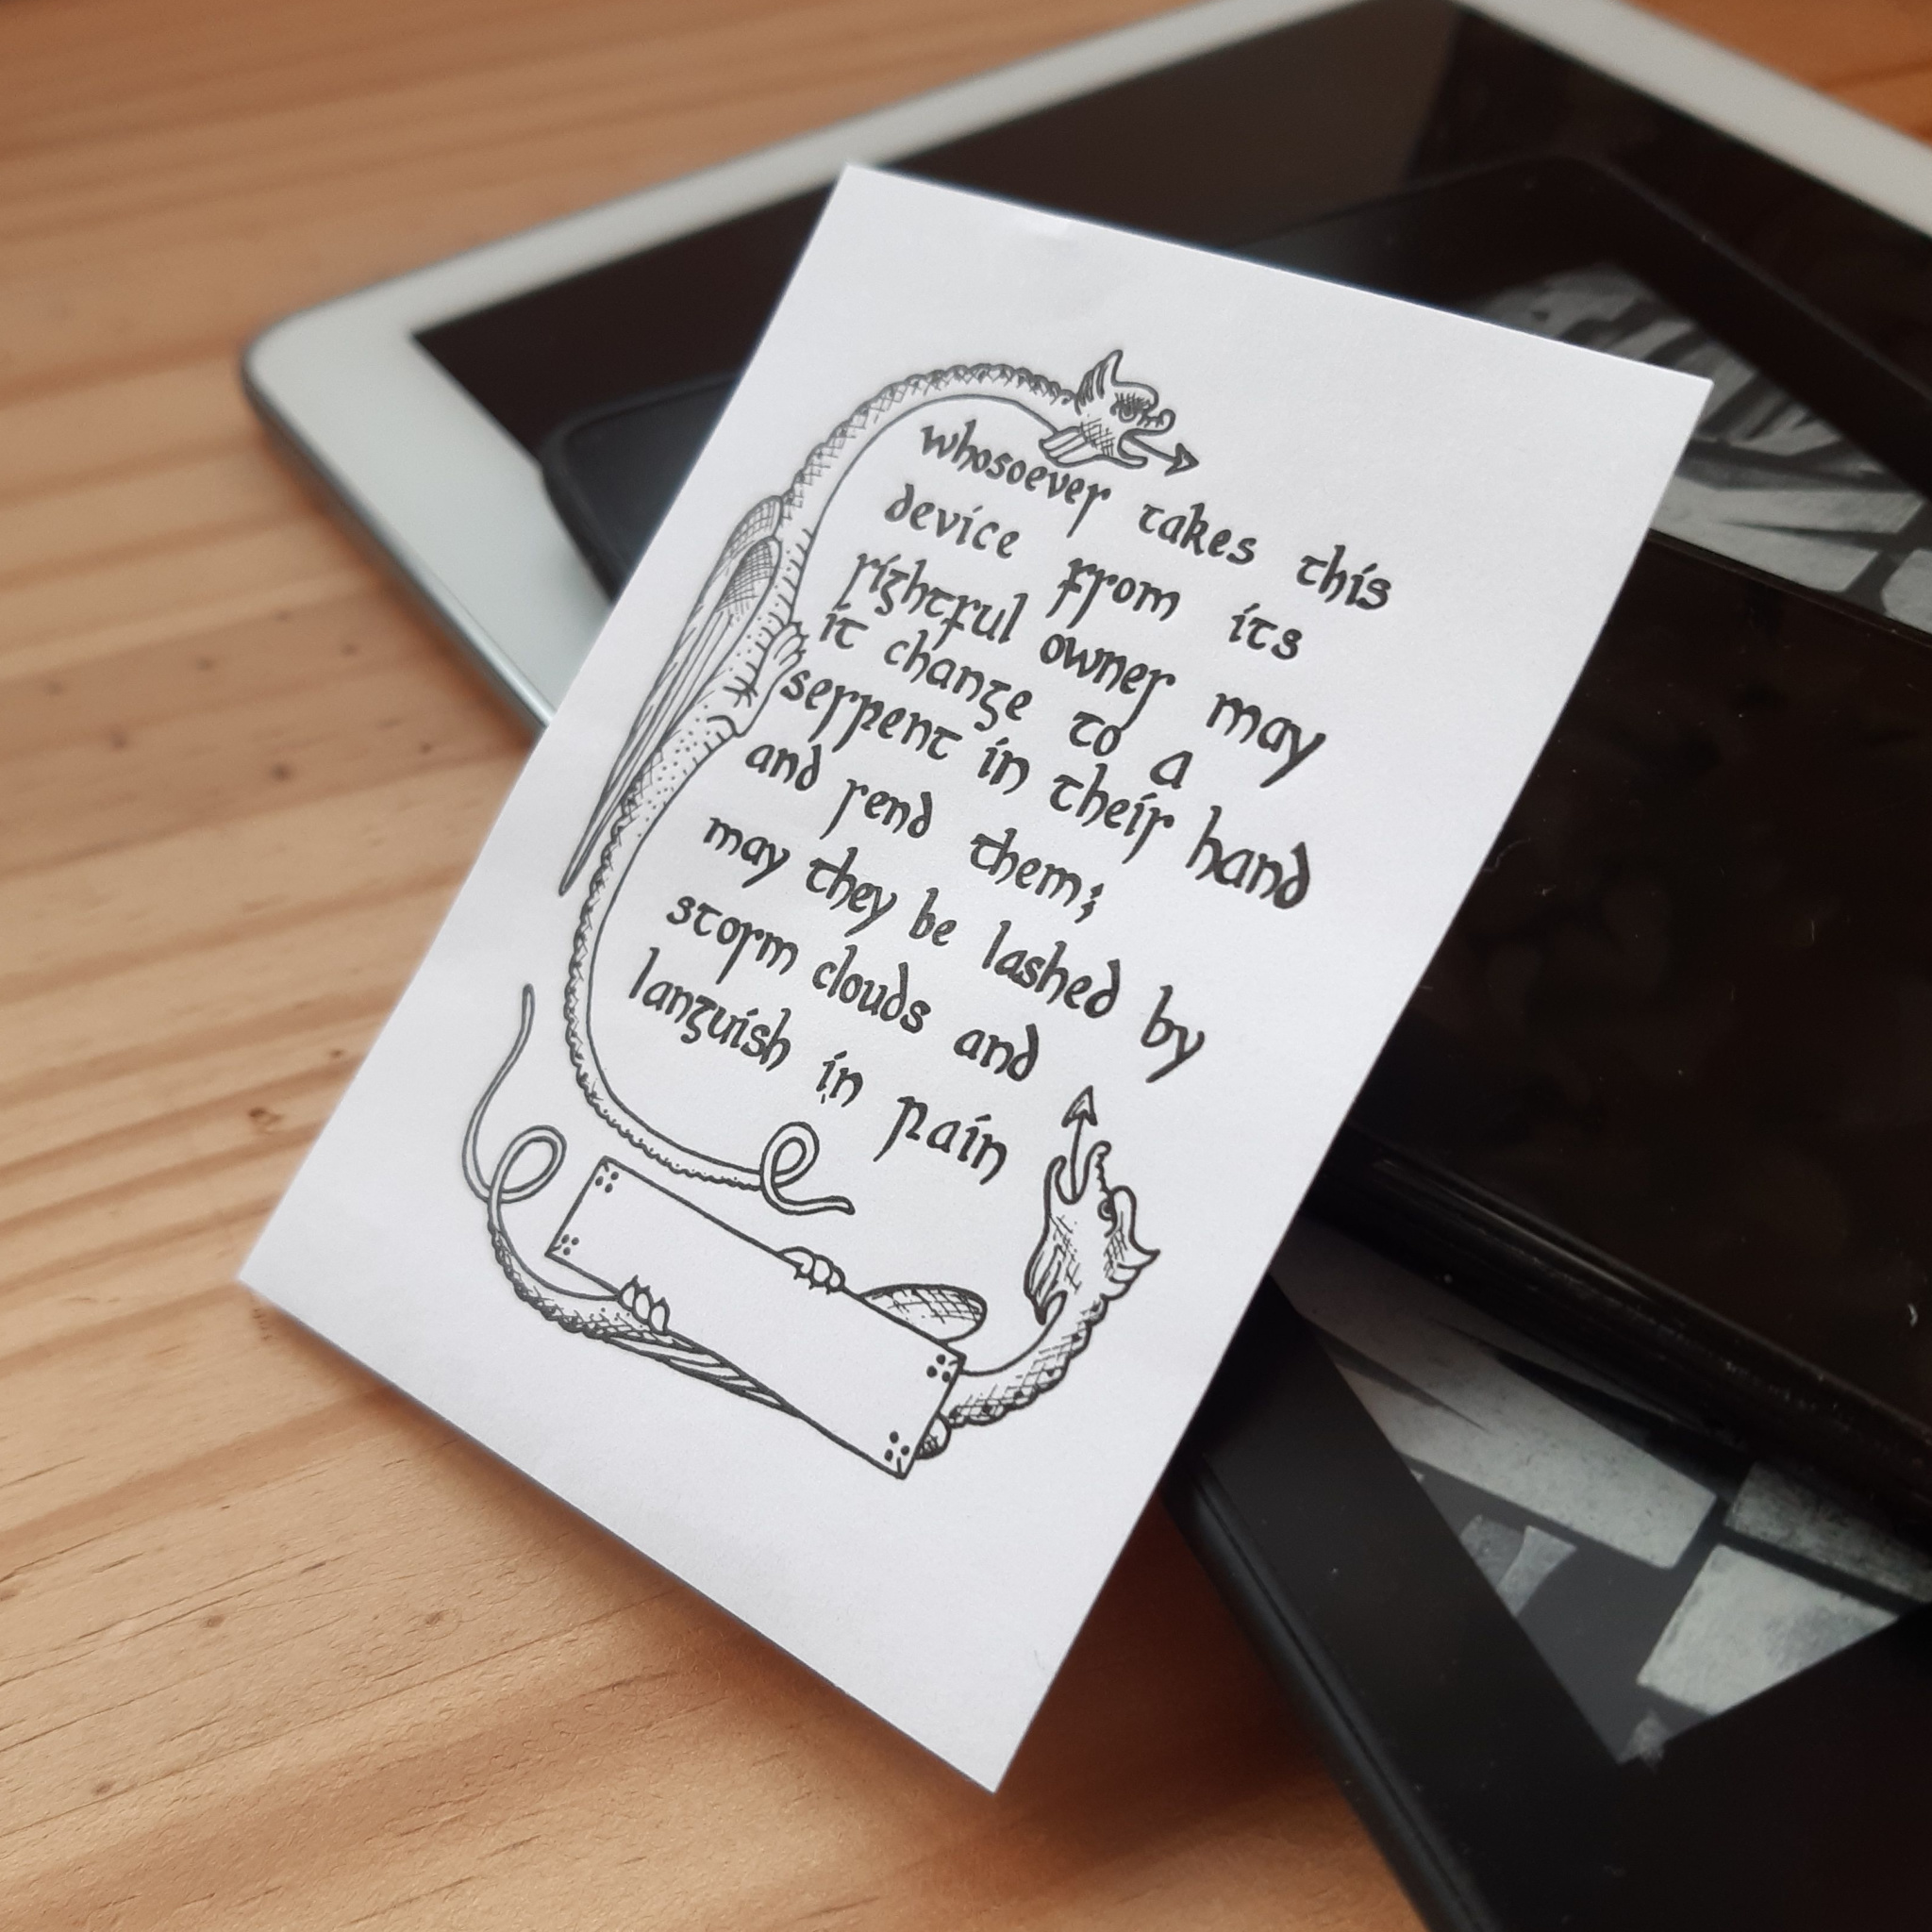 whosoever takes this
device from its
rightful owner may
it change to a
serpent in their hand
and rend them;
may they be lashed by
storm clouds and
languish in pain